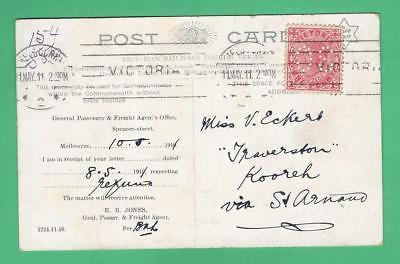 15-4
POST CARD
VICTORIAN RAILWAYS TOURIST SERIES
MELBOURNE
11.MAY.11 2
VICTORIA
VICTORIA
This space may be used for Correspondence
within the Commonwealth without
extra postage
THIS SPACE FOR
ADDRESS
General Passenger & Freight Agent's Office,
Spencer-street,
Melbourne, 10.5.1911
I am in receipt of your letter dated
8.5.1911 respecting
The matter will receive attention.
E. H. JONES,
Genl. Passr. & Freight Agent,
Per
3724.11.10.
Miss V. Eckert
"Traverston"
Kooreh
via St Arnaud